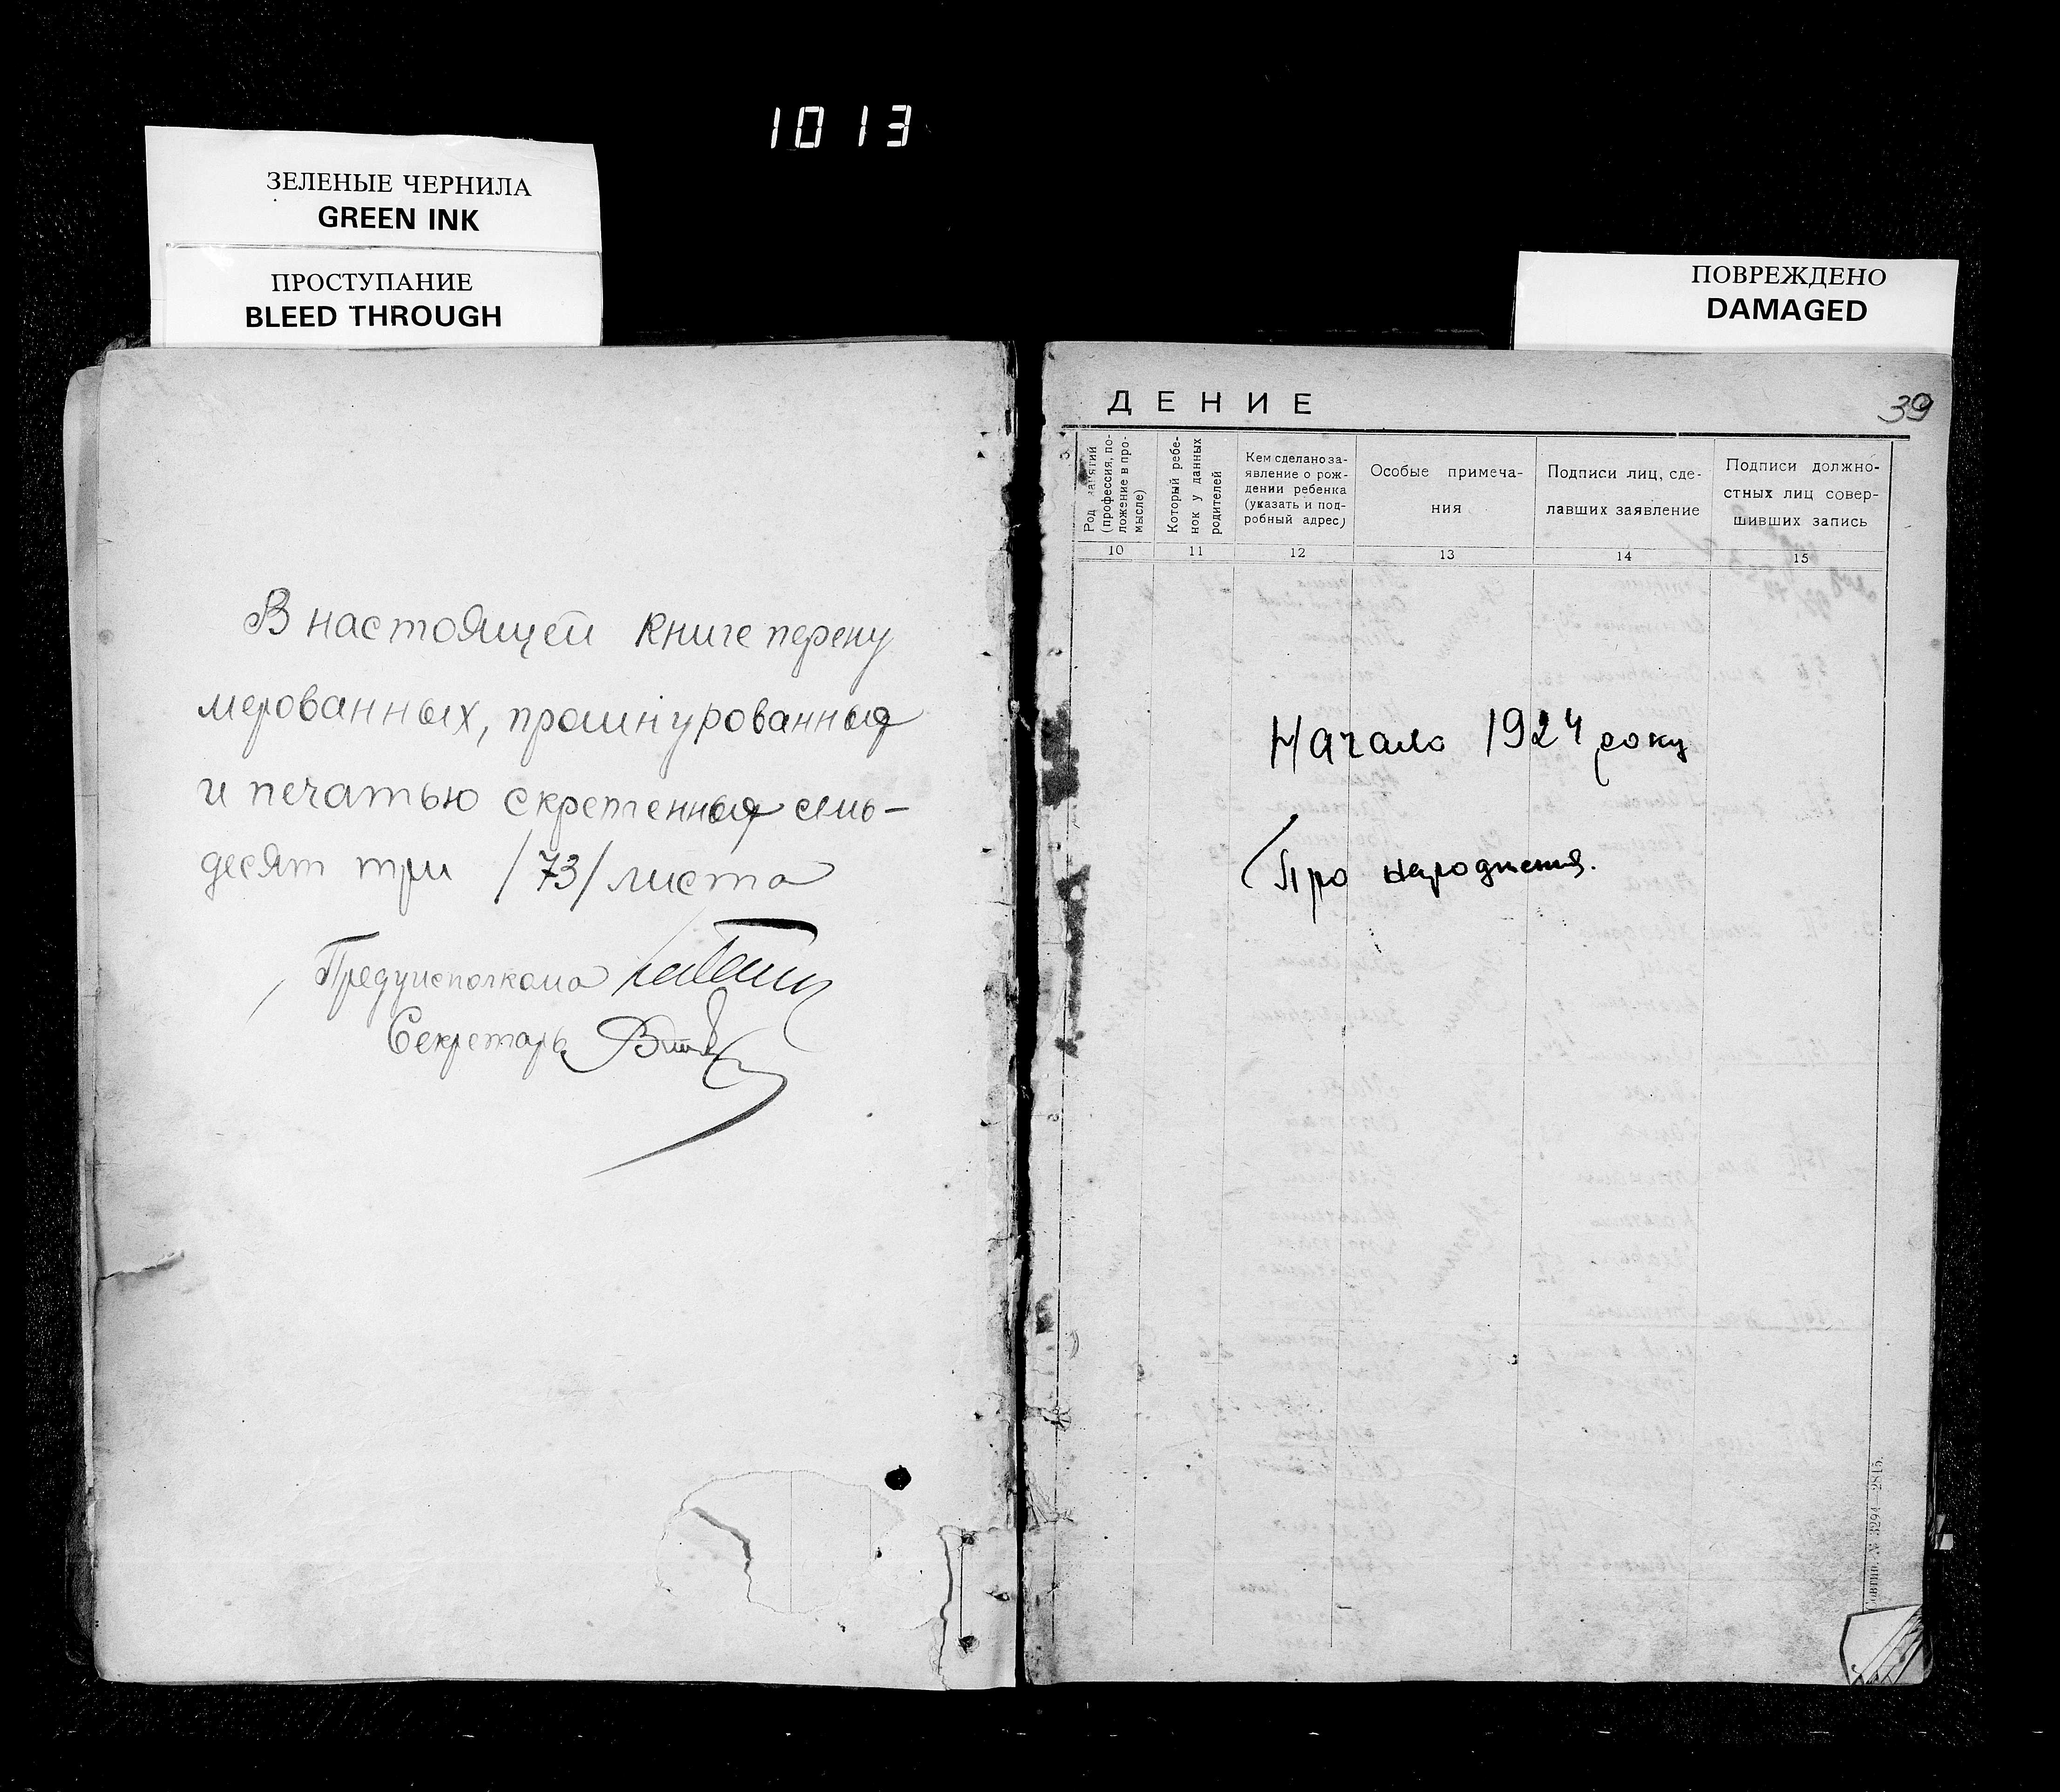 1013
ЗЕЛЕНЫЕ ЧЕРНИЛА
GREEN INK
ПРОСТУПАНИЕ
BLEED THROUGH
ПОВРЕЖДЕНО
DAMAGED
В настоящей книге перену
мерованных, прошнурованных
и печатью скрепенных семь-
десят три /73/ листа
Предуисполкома
Секретарь
ДЕНИЕ
39
Род занятий
(профессия, по-
ложение в про-
мысле)
Который ребе-
нок у данных
родителей
Кем сделано за-
явление о рож-
дении ребенка
(указать и под-
робный адрес)
Особые примеча-
ния
Подписи лиц, сде-
лавших заявление
Подписи должно-
стных лиц совер-
шивших запись
10 11 12 13 14 15
Начало 1924 року
Про народження.
№ 3294—2815.